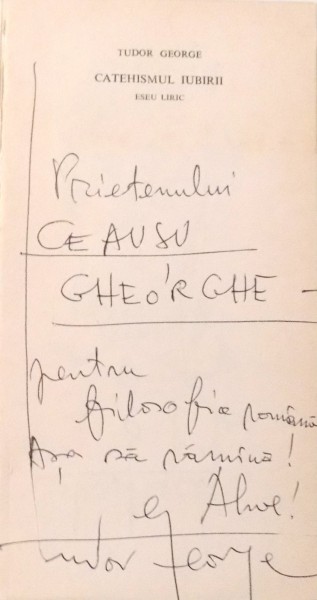 TUDOR GEORGE
CATEHISMUL IUBIRII
ESEU LIRIC
Prietenului
CEAUSU
GHEORGHE –
pentru
filosofia română
Așa să rămină!
Ahoe!
Tudor George